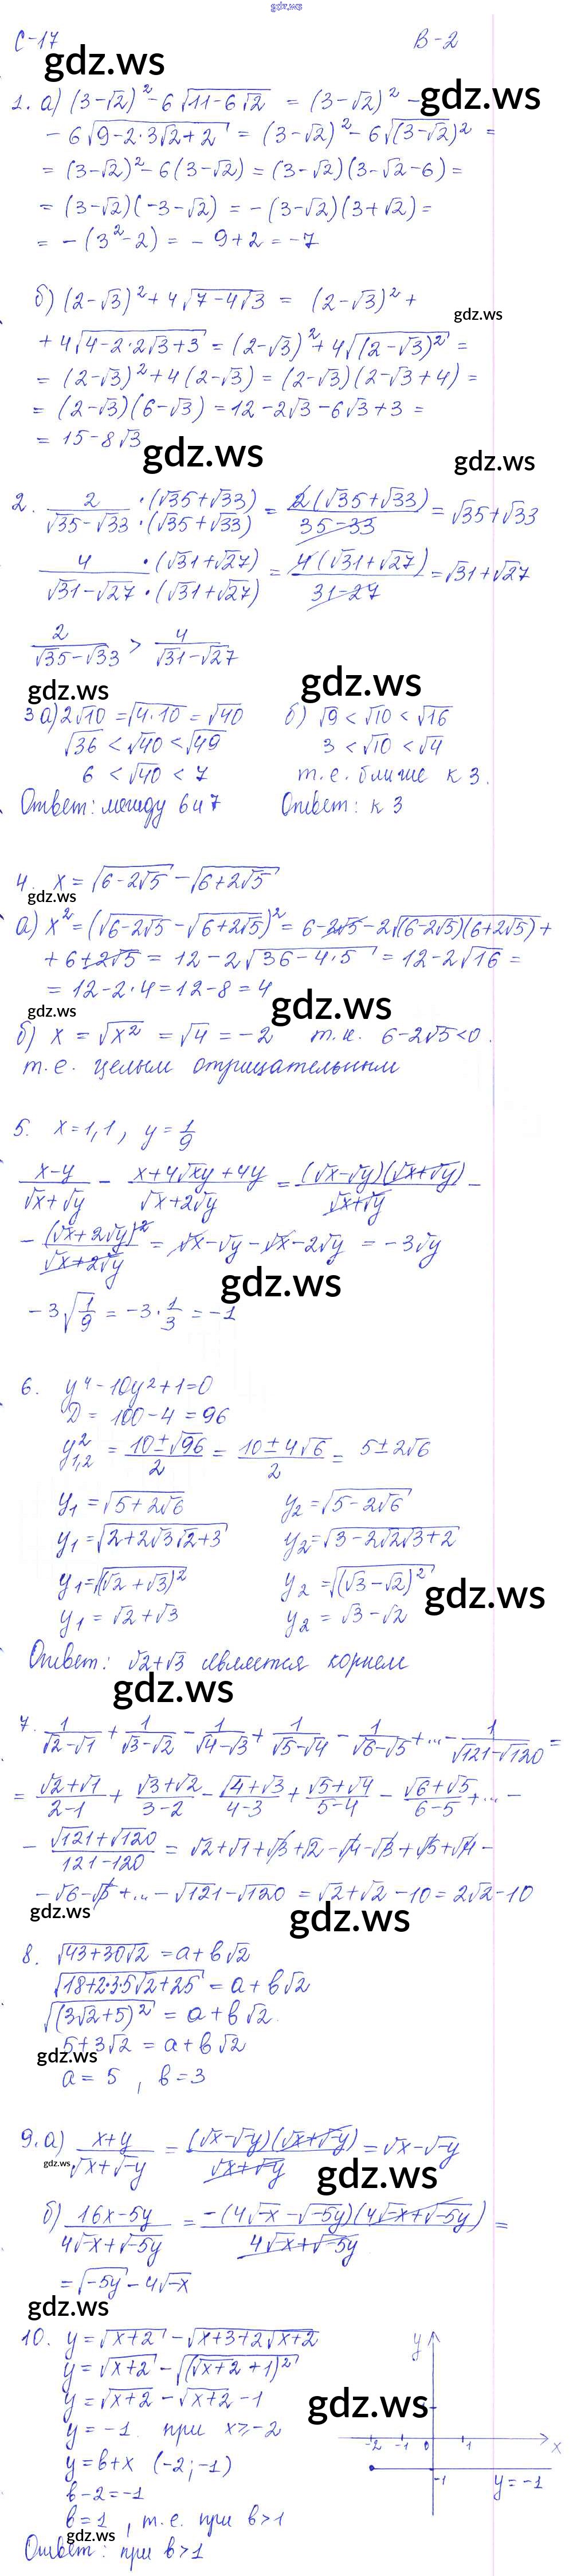 gdz.ws
С-17 В-2
gdz.ws
1. а) (3-√2)² - 6√(11-6√2) = (3-√2)² -
gdz.ws
- 6√(9-2·3√2+2) = (3-√2)² - 6√(3-√2)² =
= (3-√2)² - 6(3-√2) = (3-√2)(3-√2-6) =
= (3-√2)(-3-√2) = -(3-√2)(3+√2) =
= -(3²-2) = -9+2 = -7
б) (2-√3)² + 4√(7-4√3) = (2-√3)² +
gdz.ws
+ 4√(4-2·2√3+3) = (2-√3)² + 4√((2-√3)²) =
= (2-√3)² + 4(2-√3) = (2-√3)(2-√3+4) =
= (2-√3)(6-√3) = 12-2√3-6√3+3 =
= 15-8√3
gdz.ws
gdz.ws
2. 2/(√35-√33) ·(√35+√33)/·(√35+√33) = 2(√35+√33)/(35-33) = √35+√33
4/(√31-√27) ·(√31+√27)/·(√31+√27) = 4(√31+√27)/(31-27) = √31+√27
2/(√35-√33) > 4/(√31-√27)
gdz.ws
gdz.ws
3 а) 2√10 = √(4·10) = √40 б) √9 < √10 < √16
√36 < √40 < √49 3 < √10 < √4
6 < √40 < 7 т.е. ближе к 3.
Ответ: между 6 и 7 Ответ: к 3
4. x = √(6-2√5) - √(6+2√5)
gdz.ws
а) x² = (√(6-2√5) - √(6+2√5))² = 6-2√5-2√((6-2√5)(6+2√5)) +
+ 6+2√5 = 12-2√(36-4·5) = 12-2√16 =
= 12-2·4 = 12-8 = 4
gdz.ws
gdz.ws
б) x = √x² = √4 = -2 т.к. 6-2√5<0.
т.е. целым отрицательным
5. x=1,1, y=1/9
(x-y)/(√x+√y) - (x+4√xy+4y)/(√x+2√y) = (√x-√y)(√x+√y)/(√x+√y) -
- (√x+2√y)²/(√x+2√y) = √x-√y-√x-2√y = -3√y
gdz.ws
-3√(1/9) = -3·1/3 = -1
6. y⁴-10y²+1=0
D = 100-4=96
y²₁,₂ = (10±√96)/2 = (10±4√6)/2 = 5±2√6
y₁ = √(5+2√6) y₂ = √(5-2√6)
y₁ = √(2+2√3√2+3) y₂ = √(3-2√2√3+2)
y₁ = √((√2+√3)²) y₂ = √((√3-√2)²)
gdz.ws
y₁ = √2+√3 y₂ = √3-√2
Ответ: √2+√3 является корнем
gdz.ws
7. 1/(√2-√1) + 1/(√3-√2) - 1/(√4-√3) + 1/(√5-√4) - 1/(√6-√5) +...- 1/(√121-√120) =
= (√2+√1)/(2-1) + (√3+√2)/(3-2) - (√4+√3)/(4-3) + (√5+√4)/(5-4) - (√6+√5)/(6-5) +...-
- (√121+√120)/(121-120) = √2+√1+√3+√2-√4-√3+√5+√4-
-√6-√5+...-√121-√120 = √2+√2-10 = 2√2-10
gdz.ws
gdz.ws
8. √(43+30√2) = a+b√2
√(18+2·3·5√2+25) = a+b√2
√((3√2+5)²) = a+b√2.
5+3√2 = a+b√2
gdz.ws
a = 5, b=3
9. а) (x+y)/(√x+√-y) = (√x-√-y)(√x+√-y)/(√x+√-y) = √x-√-y
gdz.ws
gdz.ws
б) (16x-5y)/(4√-x+√-5y) = -(4√-x-√-5y)(4√-x+√-5y)/(4√-x+√-5y) =
= √-5y-4√-x
gdz.ws
10. y = √(x+2) - √(x+3+2√(x+2))
y = √(x+2) - √((√(x+2)+1)²)
y = √(x+2) - √(x+2) - 1
gdz.ws
y = -1 при x≥-2
y = b+x (-2;-1)
b-2=-1
b=1, т.е. при b>1
gdz.ws
Ответ: при b>1
y
-2 -1 0 1 x
-1 y=-1